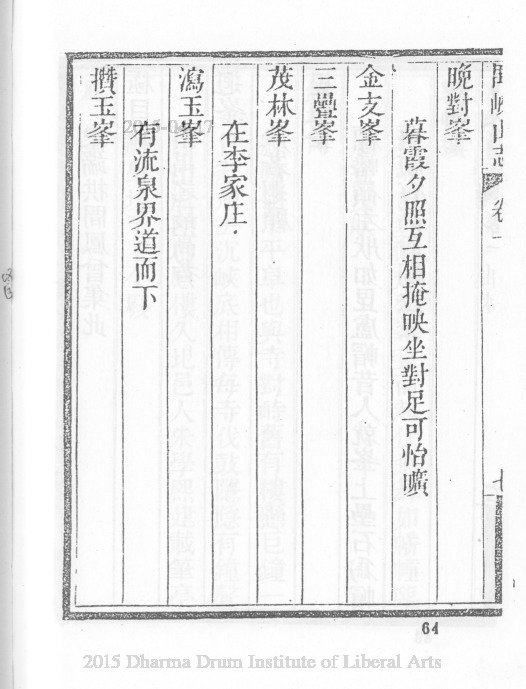 山志 卷一
晚對峯
暮霞夕照互相掩映坐對足可怡曠
金支峯
三疊峯
茂林峯
在李家庄
瀉玉峯
有流泉界道而下
攢玉峯
64
2015 Dharma Drum Institute of Liberal Arts